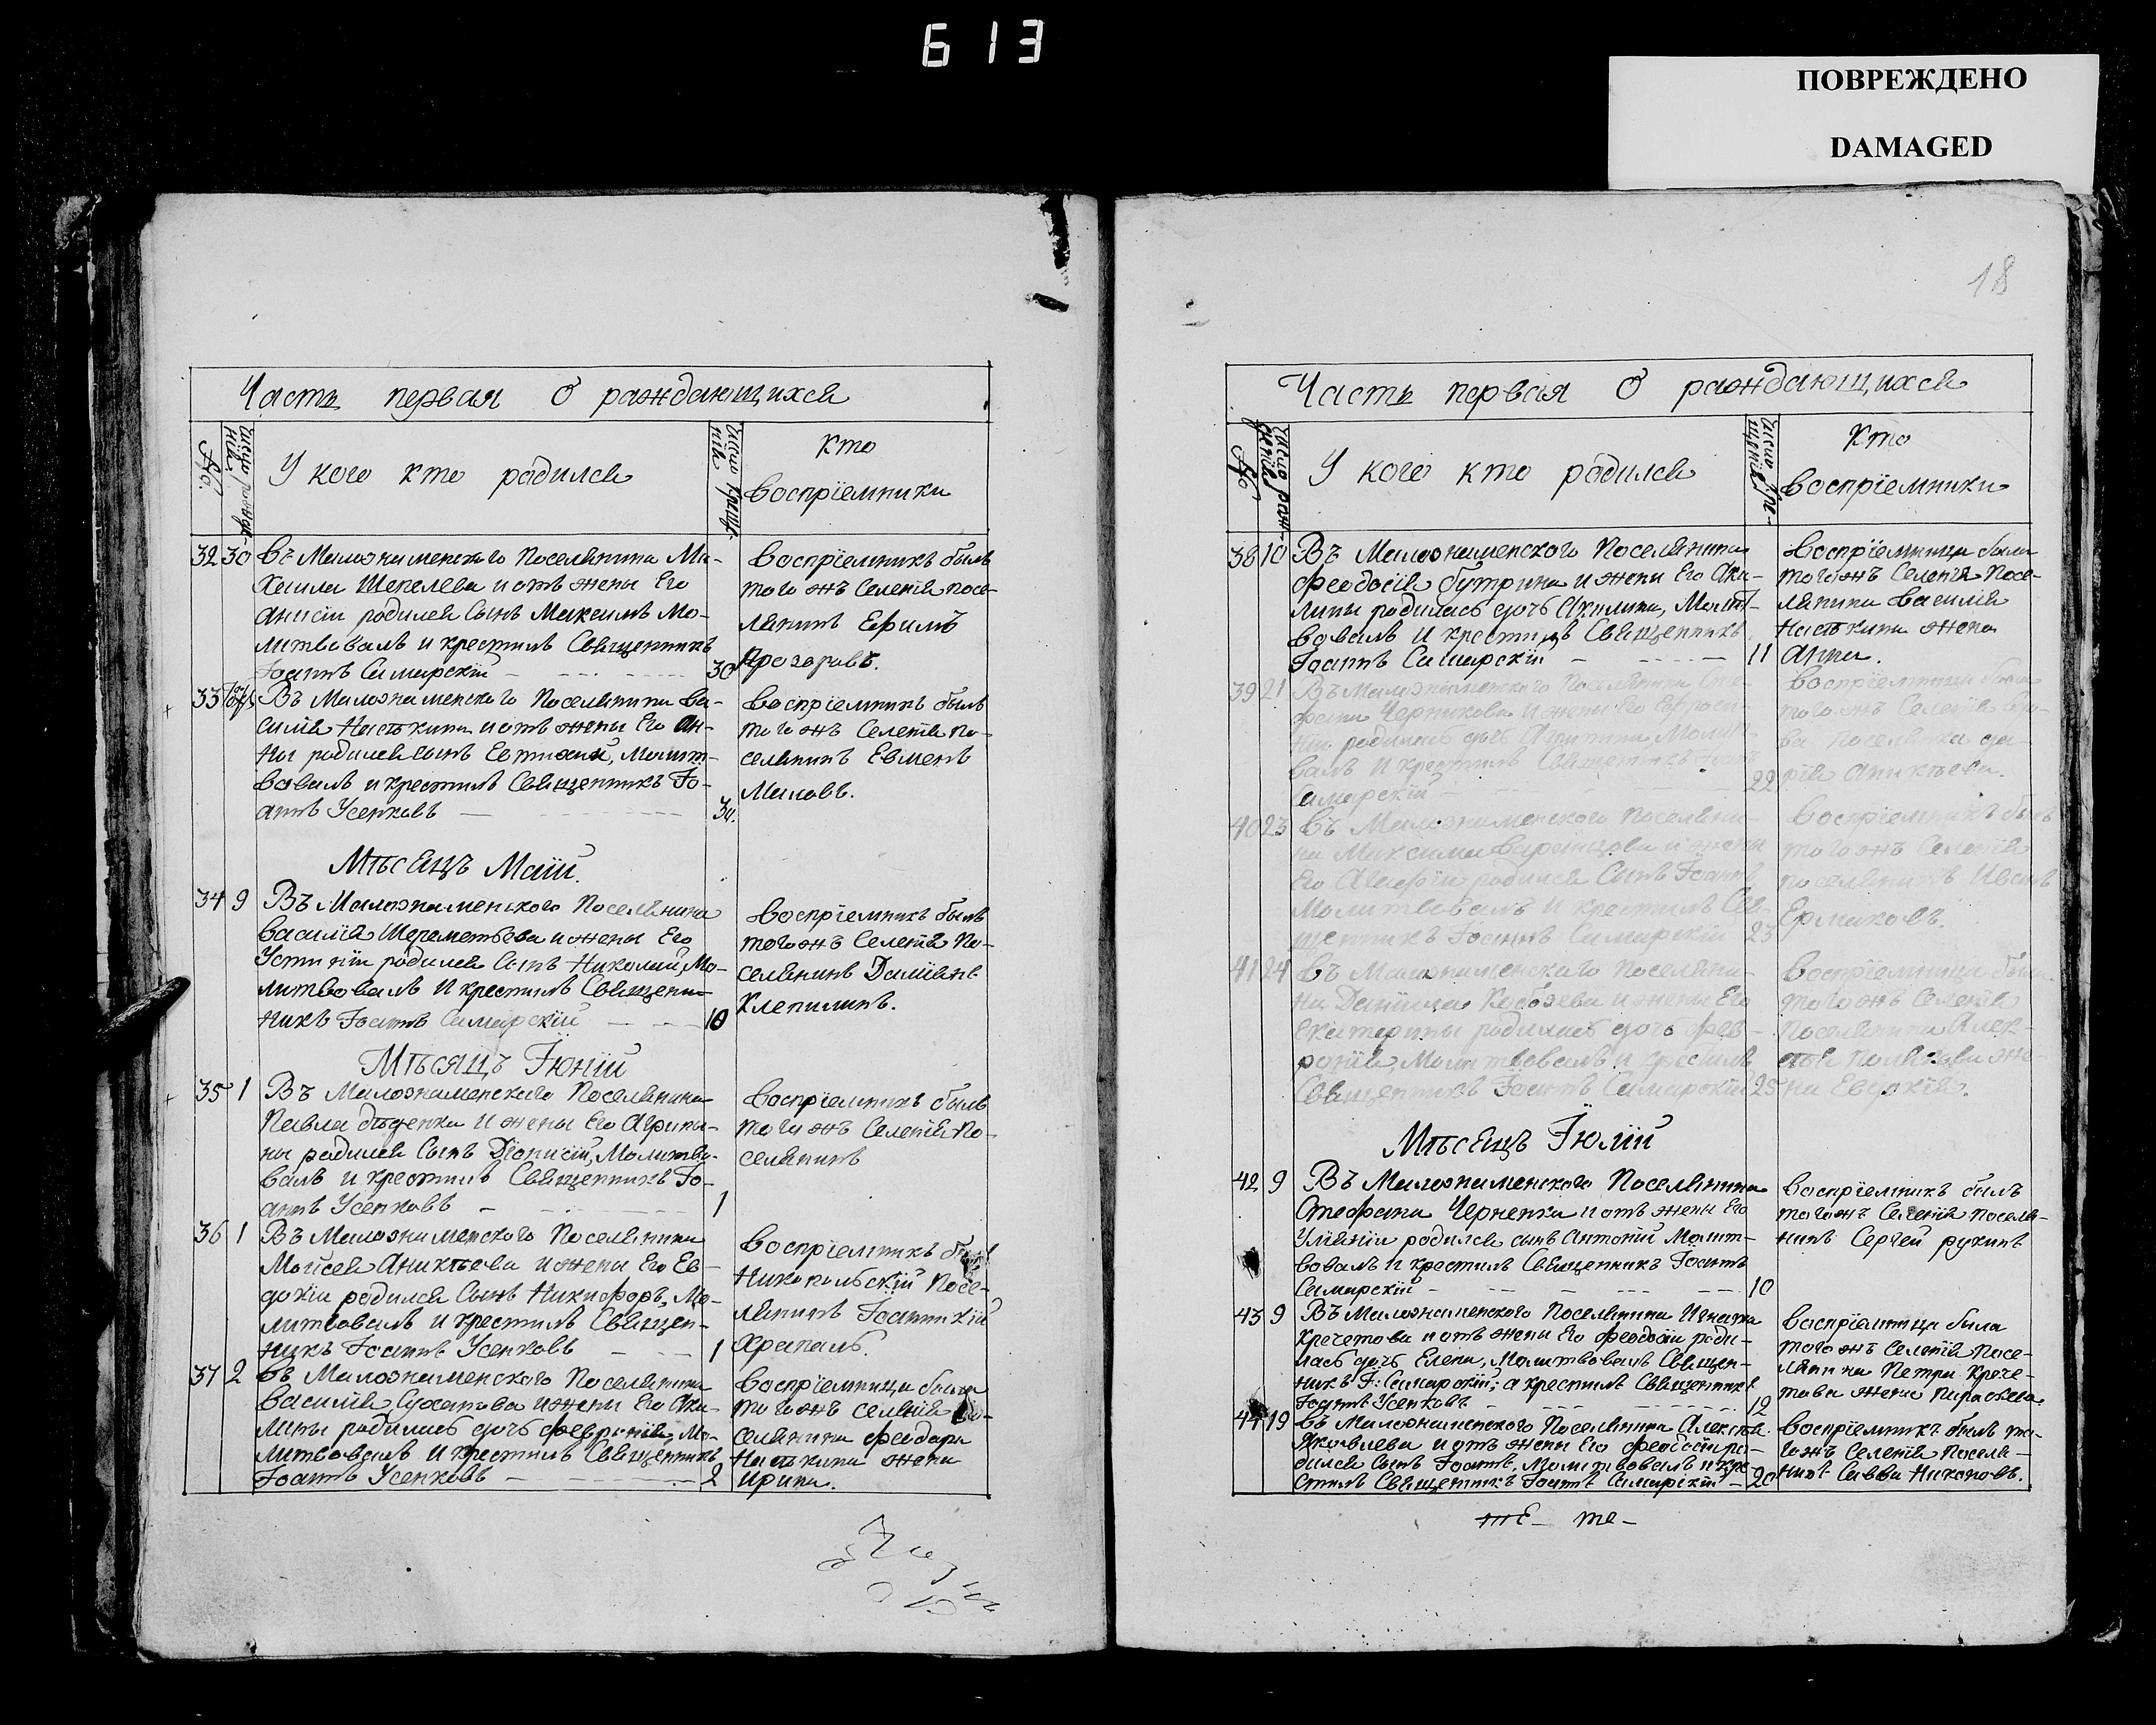 613
ПОВРЕЖДЕНО
DAMAGED
Часть первая О раждающихся
No.
У кого кто родился
Кто
воспрїемники
32 30 Въ Малознаменского Поселянина Ми-
хаила Шепелева и отъ жены Его
Анисіи родился Сынъ Максимъ Мо-
литвовалъ и крестилъ Священникъ
Іоаннъ Самарскїй 30
воспрїемникъ былъ
того жъ Селенїя посе-
лянинъ Ефимъ
33 Въ Малознаменского Поселянина Ва-
силїя Настькина и отъ жены Его Ан-
ны родился сынъ Евтихїй, Молит-
вовалъ и крестилъ Священникъ Іо-
аннъ Усенковъ
воспрїемникъ былъ
того жъ Селенїя по-
селянинъ Евменъ
Маловъ.
Мѣсяцъ Маїй.
34 9 Въ Малознаменского Поселянина
Василїя Шереметьева и жены Его
Устинїи родился Сынъ Николай, Мо-
литвовалъ И крестилъ Священ-
никъ Іоаннъ Самарскїй 10
Воспрїемникъ былъ
того жъ Селенїя По-
селянинъ Дамїанъ
Клепилинъ.
Мѣсяцъ Іюнїй
35 1 Въ Малознаменского Поселянина
Павла Дѣденка И жены Его Агрипи-
ны родился Сынъ Дїонисїй, Молитво-
валъ и крестилъ Священникъ Іо-
аннъ Усенковъ 1
воспрїемникъ былъ
того жъ Селенїя По-
селянинъ
36 1 Въ Малознаменского Поселянина
Мойсея Аникѣева и жены Его Ев-
докїи родился Сынъ Никифоръ, Мо-
литвовалъ и крестилъ Священ-
никъ Іоаннъ Усенковъ 1
Воспрїемникъ былъ
Никопольскїй Посе-
лянинъ Іоанникїй
Храпаль.
37 2 Въ Малознаменского Поселянина
Василїя Сухатова и жены Его Аки-
лины родилась дочь Февронїя, Мо-
литвовалъ И крестилъ Священникъ
Іоаннъ Усенковъ 2
Воспрїемница была
того жъ селенїя По-
селянина Феодора
Настькина жена
Ирина.
18
Часть первая О раждающихся
No
У кого кто родился
Кто
воспрїемники
38 10 Въ Малознаменского Поселянина
Феодосїя Бутрина и жены Его Аки-
лины родилась дочь Акилина, Молит-
вовалъ И крестилъ Священникъ
Іоаннъ Самарскїй 11
Воспрїемница была
того жъ Селенїя Посе-
лянина Василїя
Настькина жена
Анна.
39 21 Въ Малознаменского Поселянина Сте-
фана Черникова И жены Его Евфроси-
нїи родилась дочь Молит-
валъ И крестилъ Священникъ Іоаннъ
Самарскїй 22
воспрїемница была
того жъ Селенїя вдо-
ва поселянка Да-
рїя Аникѣева.
40 23 Въ Малознаменского Поселяни-
на Максима Варенцова и жены
Его Агафїи родился Сынъ Іоаннъ
Молитвовалъ И крестилъ Свя-
щенникъ Іоаннъ Самарскїй 23
Воспрїемникъ былъ
того жъ Селенїя
поселянинъ Иванъ
Ермаковъ.
41 24 Въ Малознаменского Поселяни-
на Данїила Кобзева и жены Его
Екатерины родилась дочь Фев-
ронїя, Молитвовалъ и крестилъ
Священникъ Іоаннъ Самарскїй 25
Воспрїемница была
того жъ Селенїя
Поселянина Алек-
сѣя Полякова же-
на Евдокїя.
Мѣсяцъ Іюлїй
42 9 Въ Малознаменского Поселянина
Стефана Черненка и отъ жены Его
Улїянїи родился сынъ Антонїй Молит-
вовалъ и крестилъ Священникъ Іоаннъ
Самарскїй 10
воспрїемникъ былъ
того жъ Селенїя поселя-
нинъ Сергей Рукинъ
43 9 Въ Малознаменского Поселянина Игната
Кречетова и отъ жены Его Феодосїи роди-
лась дочь Елена, Молитвовалъ Священ-
никъ І: Самарскїй; а крестилъ Священникъ
Іоаннъ Усенковъ 12
воспрїемница была
того жъ Селенїя Посе-
лянина Петра Крече-
това жена
44 19 Въ Малознаменского Поселянина Алексѣя
Яковлева и отъ жены Его Феодосїи ро-
дился Сынъ Іоаннъ, Молитвовалъ и кре-
стилъ Священникъ Іоаннъ Самарскїй 20
воспрїемникъ былъ то-
гожъ Селенїя Поселя-
нинъ Савва Никоновъ.